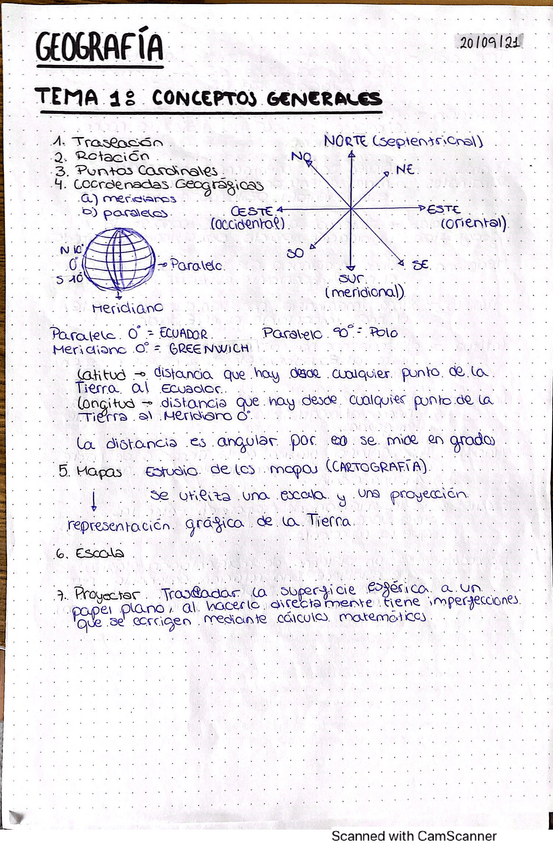 GEOGRAFÍA
20/09/21
TEMA 1: CONCEPTOS GENERALES
1. Traslación
2. Rotación
3. Puntos Cardinales
4. Coordenadas Geográficas
a) meridianos
b) paralelos
NORTE (Septentrional)
NO
NE
OESTE
(occidental)
ESTE
(oriental)
SO
SE
SUR
(meridional)
N 10°
0°
S 10°
→ Paralelo
Meridiano
Paralelo 0° = ECUADOR. Paralelo 90° = Polo
Meridiano 0° = GREENWICH
Latitud → distancia que hay desde cualquier punto de la
Tierra al Ecuador.
Longitud → distancia que hay desde cualquier punto de la
Tierra al Meridiano 0°
La distancia es angular por eso se mide en grados
5. Mapas Estudio de los mapas (CARTOGRAFÍA).
Se utiliza una escala y una proyección
representación gráfica de la Tierra
6. Escala
7. Proyectar. Trasladar la superficie esférica a un
papel plano, al hacerlo directamente tiene imperfecciones
que se corrigen mediante cálculos matemáticos.
Scanned with CamScanner